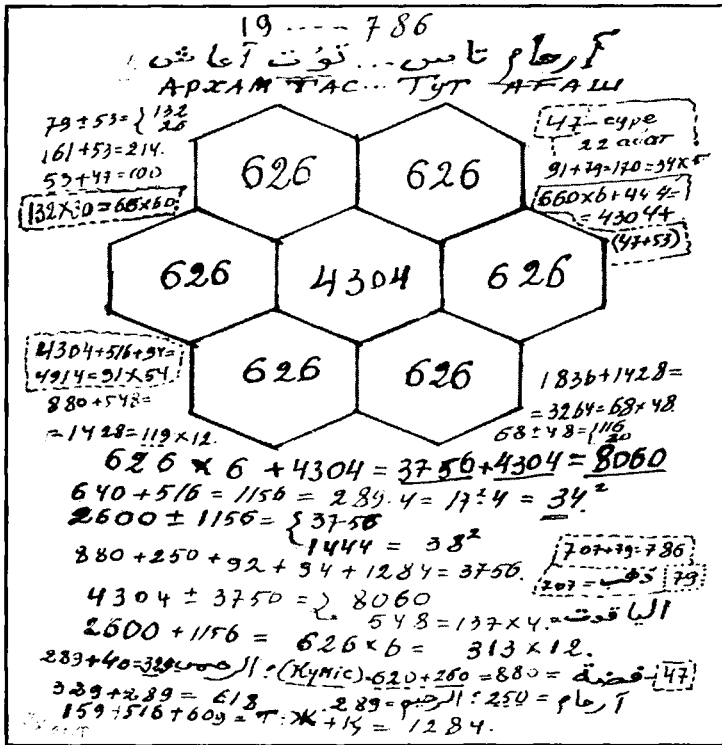 19 ..... 786
آرحام تاس... توت آعاش
АРХАМ ТАС... ТУТ АҒАШ
79±53={132
26
161+53=214.
53+47=100
132×30=66×60
47-сүре
22 аят
91+79=170=34×5
660×6+444=
=4304+
(47+53)
626 626
626 4304 626
626 626
4304+516+94=
4914=91×54
880+548=
=1428=119×12.
1836+1428=
=3264=68×48.
68±48={116
20
626 × 6 + 4304 = 3756+4304 = 8060
640+516 = 1156 = 289·4 = 17²·4 = 34²
2600 ± 1156 = {3756
1444 = 38²
880+250+92+94+1284=3756.
707+79=786
707 = ذهب 79
4304 ± 3750 = { 8060
548=137×4.= الیاقوت
2600+1156 = 626×6 = 313×12.
289+40=329= :(Күміс)=620+260=880= فضة -47
329+289= 618 289= الرحیم : 250= آرحام
159+516+609= Т.Ж+Қ = 1284.